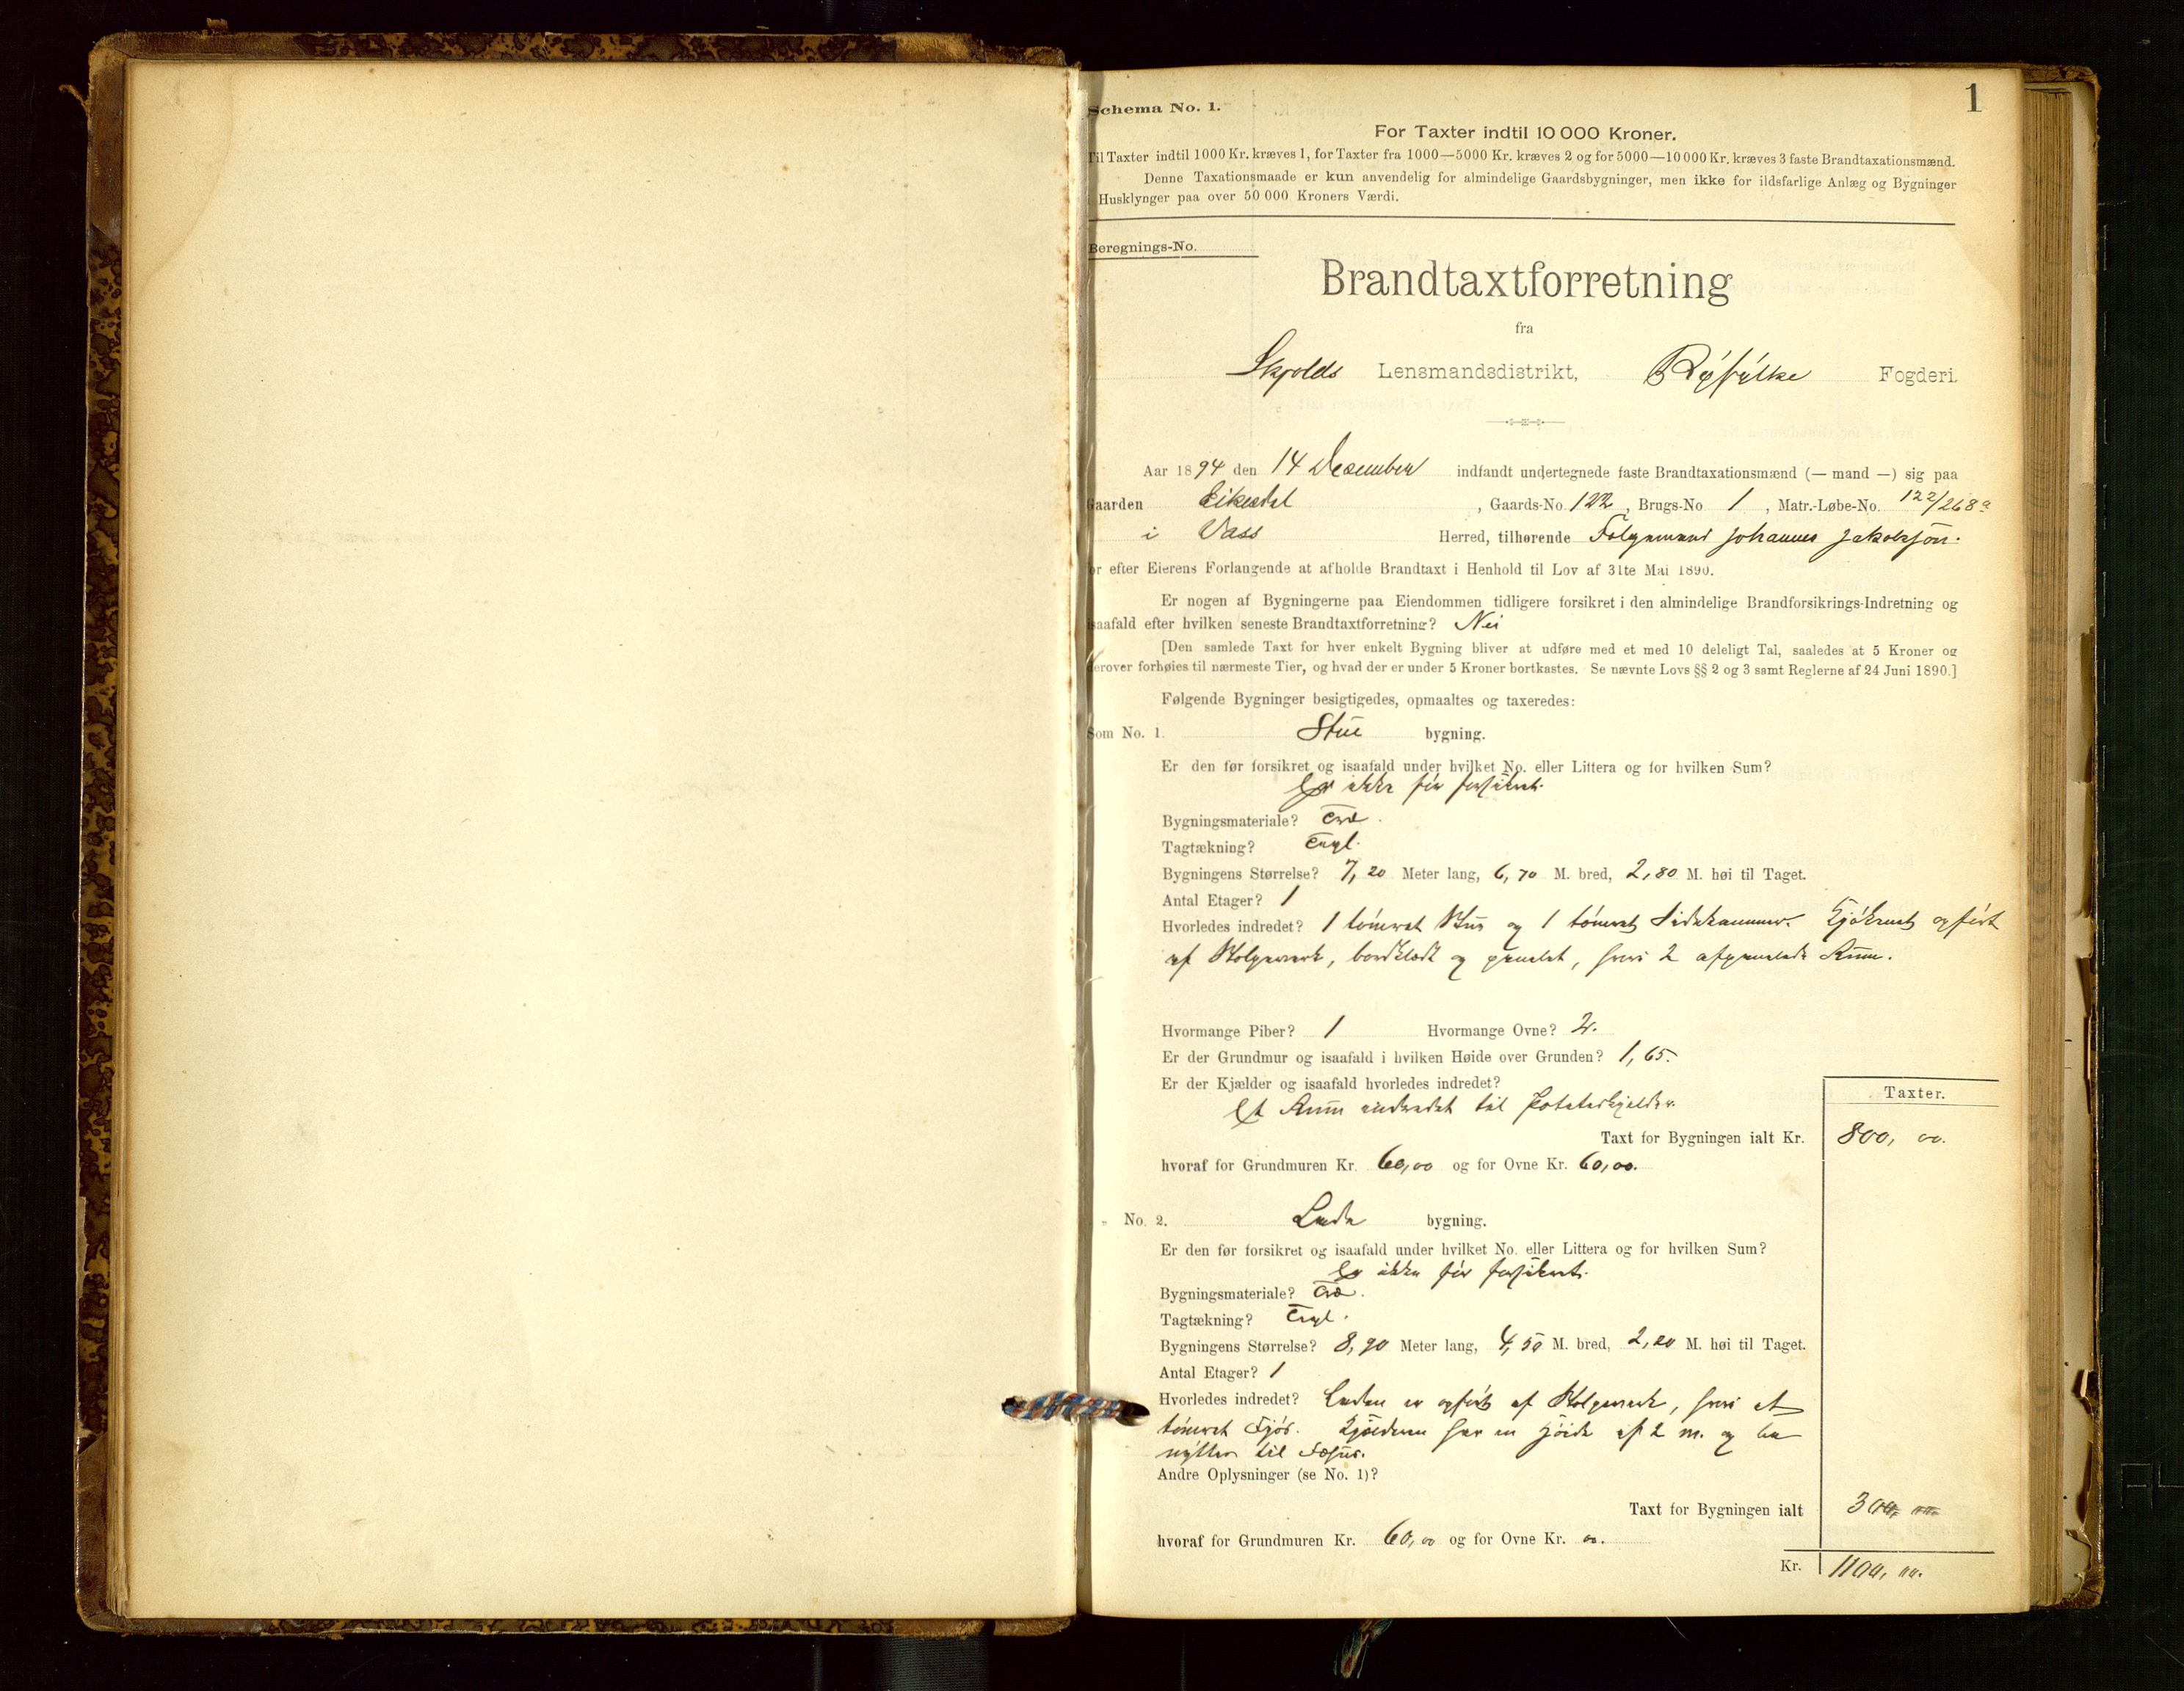 1
Schema No. 1.
For Taxter indtil 10 000 Kroner.
Til Taxter indtil 1000 Kr. kræves 1, for Taxter fra 1000—5000 Kr. kræves 2 og for 5000—10 000 Kr. kræves 3 faste Brandtaxationsmænd.
Denne Taxationsmaade er kun anvendelig for almindelige Gaardsbygninger, men ikke for ildsfarlige Anlæg og Bygninger
i Husklynger paa over 50 000 Kroners Værdi.
Beregnings-No.
Brandtaxtforretning
fra
Skjolds Lensmandsdistrikt, Ryfylke Fogderi.
Aar 1894 den 14 Desember indfandt undertegnede faste Brandtaxationsmænd (— mand —) sig paa
Gaarden Eikedal, Gaards-No. 122, Brugs-No 1, Matr.-Løbe-No. 122/268a
i Vass Herred, tilhørende Johannes Jakobson.
for efter Eierens Forlangende at afholde Brandtaxt i Henhold til Lov af 31te Mai 1890.
Er nogen af Bygningerne paa Eiendommen tidligere forsikret i den almindelige Brandforsikrings-Indretning og
isaafald efter hvilken seneste Brandtaxtforretning? Nei
[Den samlede Taxt for hver enkelt Bygning bliver at udføre med et med 10 deleligt Tal, saaledes at 5 Kroner og
derover forhøies til nærmeste Tier, og hvad der er under 5 Kroner bortkastes. Se nævnte Lovs §§ 2 og 3 samt Reglerne af 24 Juni 1890.]
Følgende Bygninger besigtigedes, opmaaltes og taxeredes:
Som No. 1. Stue bygning.
Er den før forsikret og isaafald under hvilket No. eller Littera og for hvilken Sum?
Er ikke før forsikret.
Bygningsmateriale? Træ.
Tagtækning? Tegl.
Bygningens Størrelse? 7,20 Meter lang, 6,70 M. bred, 2,80 M. høi til Taget.
Antal Etager? 1
Hvorledes indredet? 1 tømret Stue og 1 tømret Sidekammer. Kjøkenet opført
af Stolpeverk, bordklædt og panelet, hvori 2 afpanelede Rum.
Hvormange Piber? 1 Hvormange Ovne? 2.
Er der Grundmur og isaafald i hvilken Høide over Grunden? 1,65.
Er der Kjælder og isaafald hvorledes indredet?
Et Rum indredet til Poteteskjelder.
Taxter.
Taxt for Bygningen ialt Kr. 800, 00.
hvoraf for Grundmuren Kr. 60,00 og for Ovne Kr. 60,00.
" No. 2. Lade bygning.
Er den før forsikret og isaafald under hvilket No. eller Littera og for hvilken Sum?
Er ikke før forsikret.
Bygningsmateriale? Træ.
Tagtækning? Tegl.
Bygningens Størrelse? 8,90 Meter lang, 4,50 M. bred, 2,20 M. høi til Taget.
Antal Etager? 1
Hvorledes indredet? Laden er opført af Stolpeverk, hvori et
tømret Fjøs. Kjælderen har en Høide af 2 m. og be
nyttes til Fæhus.
Andre Oplysninger (se No. 1)?
Taxt for Bygningen ialt 300, 00
hvoraf for Grundmuren Kr. 60,00 og for Ovne Kr. 00.
Kr. 1100, 00.